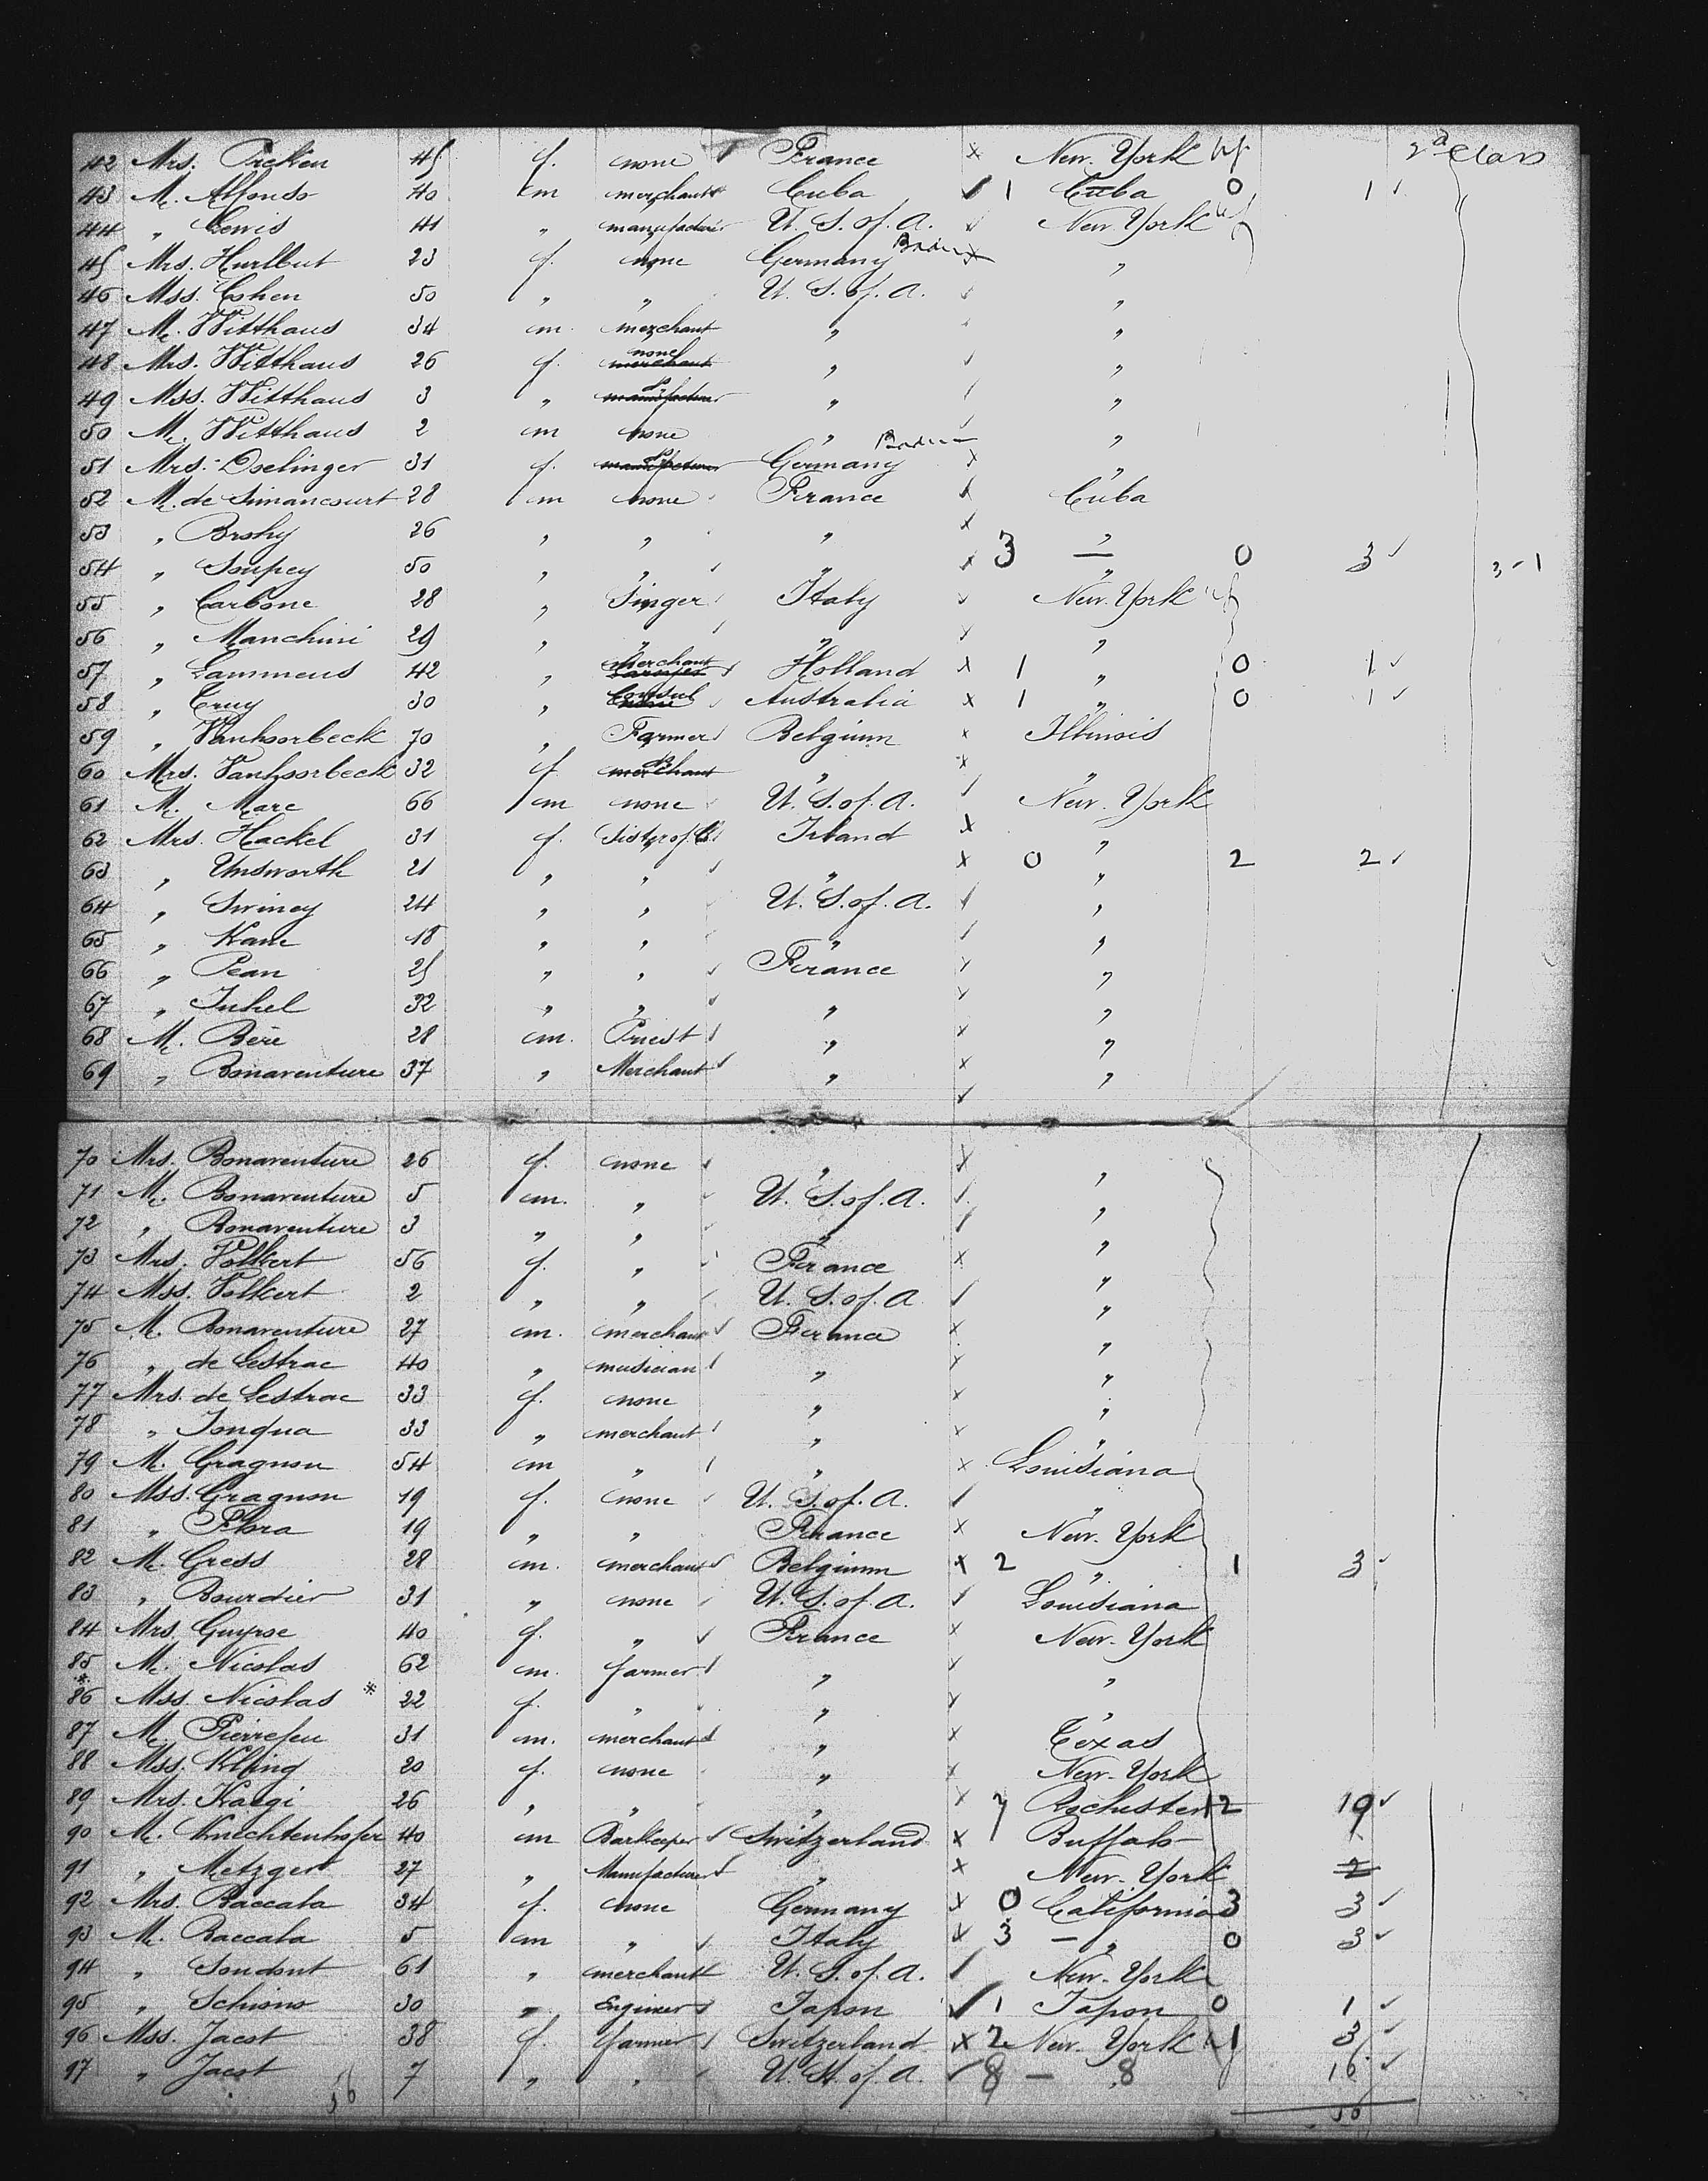 2d Class
42 Mrs. Picken 45 f. none France x New-York
43 M. Alfonso 40 m merchant Cuba 1 Cuba 0 1
44 " Lewis 41 " manufacturer U. S. of. A. New-York
45 Mrs. Hurlbut 23 f. none Germany Baden x "
46 Mss. Cohen 50 " " U. S. of. A. "
47 M. Witthaus 34 m. merchant " "
48 Mrs. Witthaus 26 f. none merchant " "
49 Mss. Witthaus 3 " do manufacturer " "
50 M. Witthaus 2 m none " "
51 Mrs. Oselinger 31 f. do manufacturer Germany Baden x "
52 M. de Simancourt 28 m none France x Cuba
53 " Brohy 26 " " " x "
54 " Soupey 50 " " " x 3 — " 0 3 3-1
55 " Carbone 28 " Singer Italy New-York
56 " Manchini 29 " " " "
57 " Lammens 42 " merchant Holland x 1 " 0 1
58 " Cruy 30 " Consul Australia x 1 " 0 1
59 " Vanhoorbeck 70 " Farmer Belgium x Illinois
60 Mrs. Vanhoorbeck 32 f do merchant " x "
61 M. Marc 66 m none U. S. of. A. New-York
62 Mrs. Hackel 31 f. Sister of C. Irland x "
63 " Unsworth 21 " " " x 0 " 2 2
64 " Swiney 24 " " U. S. of. A. "
65 " Kane 18 " " " "
66 " Pean 25 " " France x "
67 " Juhel 32 " " " x "
68 M. Bere 28 m. Priest " x "
69 " Bonaventure 37 " Merchant " x "
70 Mrs. Bonaventure 26 f. none " x "
71 M. Bonaventure 5 m. " U. S. of. A. "
72 " Bonaventure 3 " " " "
73 Mrs. Volkert 56 f. " France x "
74 Mss. Volkert 2 " " U. S. of. A "
75 M. Bonaventure 27 m. merchant France x "
76 " de Lestrac 40 " musician " x "
77 Mrs. de Lestrac 33 f. none " x "
78 " Jonqua 33 " merchant " x "
79 M. Gragnon 54 m " " x Louisiana
80 Mss. Gragnon 19 f. none U. S. of. A. "
81 " Flora 19 " " France x New-York
82 M. Gress 28 m. merchant Belgium x 2 " 1 3
83 " Bourdier 31 " none U. S. of. A. Louisiana
84 Mrs. Guyose 40 f. " France x New-York
85 M. Nicolas 62 m. farmer " x "
86 Mss. Nicolas * 22 f. " " x "
87 M. Pierrefeu 31 m. merchant " x Texas
88 Mss. Kling 20 f. none " x New-York
89 Mrs. Kaegi 26 " " " x 7 Rochester 12 19
90 M. Knechtenhofer 40 m Barkeeper Switzerland x Buffalo
91 " Metzger 27 " Manufacturer " x New-York 2
92 Mrs. Baccala 34 f. none Germany x 0 California 3 3
93 M. Baccala 5 m " Italy x 3 — " 0 3
94 " Sondont 61 " merchant U. S. of. A. New-York
95 " Schiono 30 " Engineer Japon 1 Japon 0 1
96 Mss. Jacot 38 f. farmer Switzerland x 2 New-York 1 3
97 " Jacot 7 " " U. S. of. A. 8 — 8 16
56 56